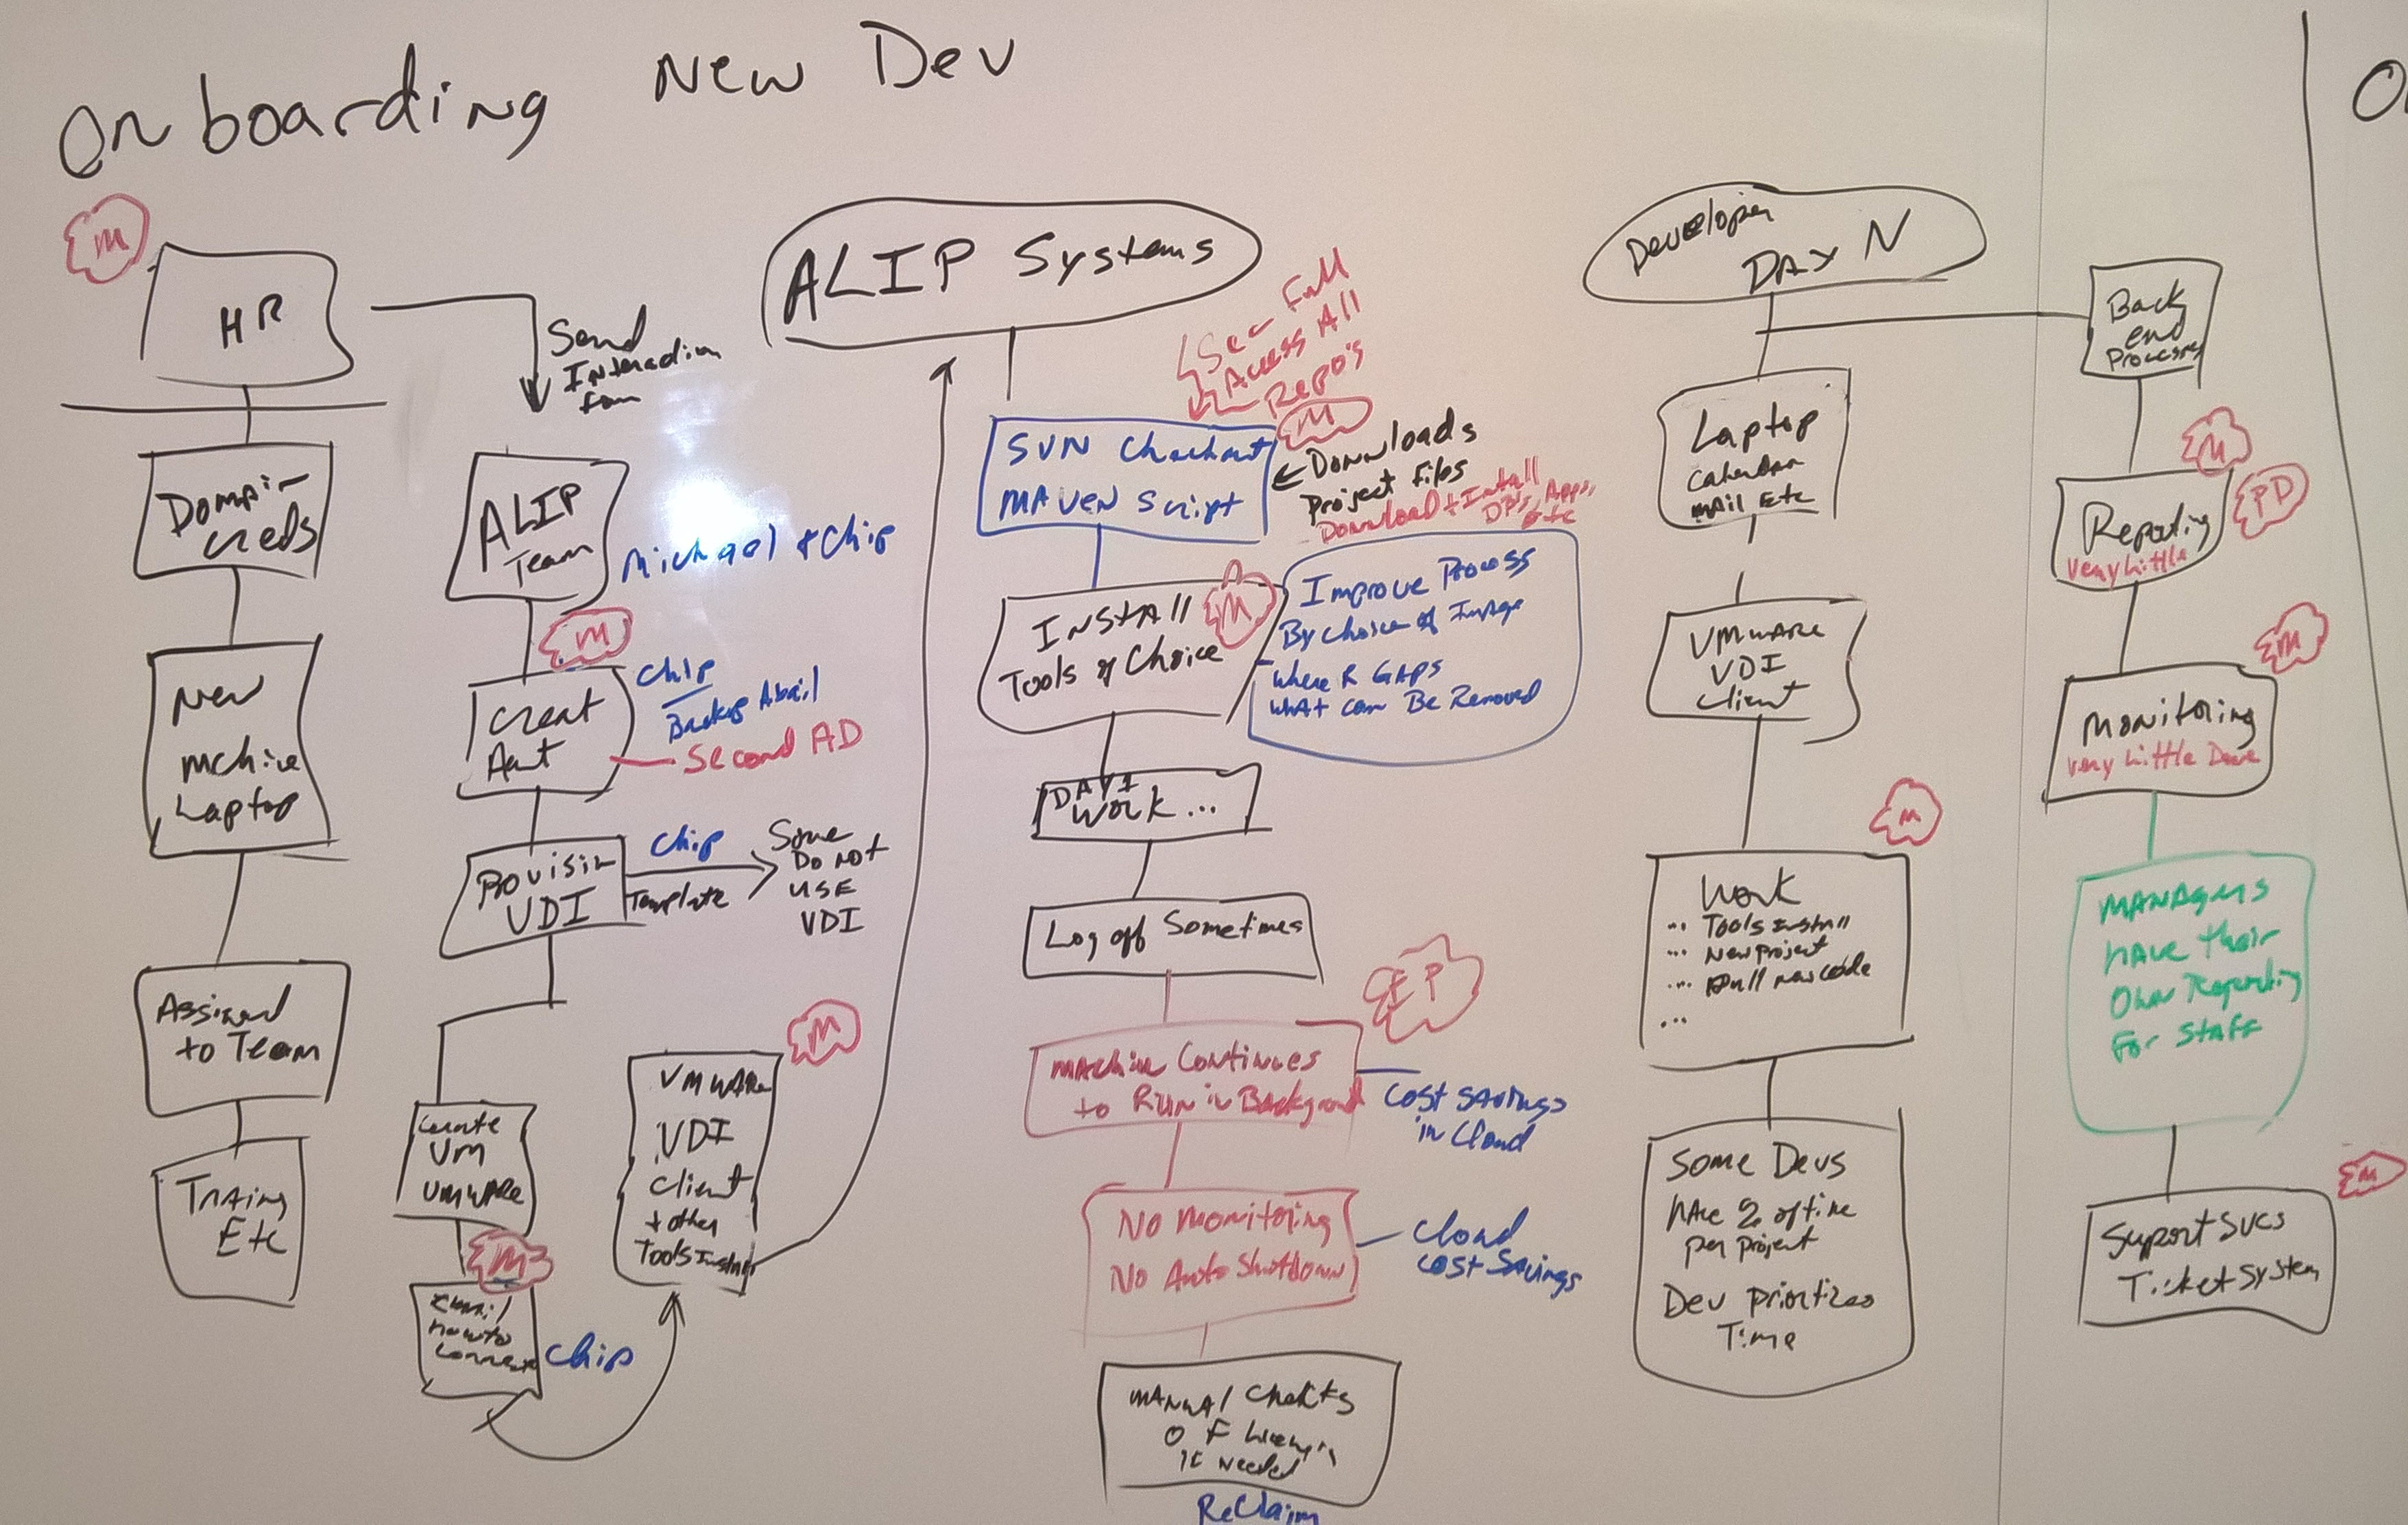 Onboarding New Dev
O
M
HR
Domain
Creds
New
Mchine
Laptop
Assigned
to Team
Traing
Etc
Send
Interaction
ALIP
Team
Michael + Chip
M
Creat
Chip
Backup Abail
Second AD
Provisin
VDI
Chip
Template
Some
Do not
USE
VDI
Create
VM
VMWARE
M
Email
how to
connect
Chip
M
VMWARE
VDI
Client
+ other
Tools Install
ALIP Systems
Sec Full
Access All
Repo's
M
SVN Checkout
MAVEN Script
Downloads
Project Files
Download + Intall
Apps,
Etc
Install
Tools of Choice
M
Improve Process
By Choice of Image
Where R GAPS
What can Be Removed
DAY 1
Work...
Log off Sometimes
EP
Machine Continues
to Run in Background
Cost Savings
in Cloud
No Monitoring
No Auto Shutdown
Cloud
Cost Savings
Manual Checks
OF
if needed
ReClaim
Developer
DAY N
Laptop
Calendar
Mail Etc
VMWARE
VDI
Client
M
Work
... Tools Install
... New Project
... Pull new code
...
Some Devs
have % of time
per project
Dev prioritizes
Time
Back
end
Processes
M
Reporting
Very Little
PD
M
Monitoring
Very Little Done
Managers
have their
Own Reporting
For Staff
M
Support Svcs
Ticket System